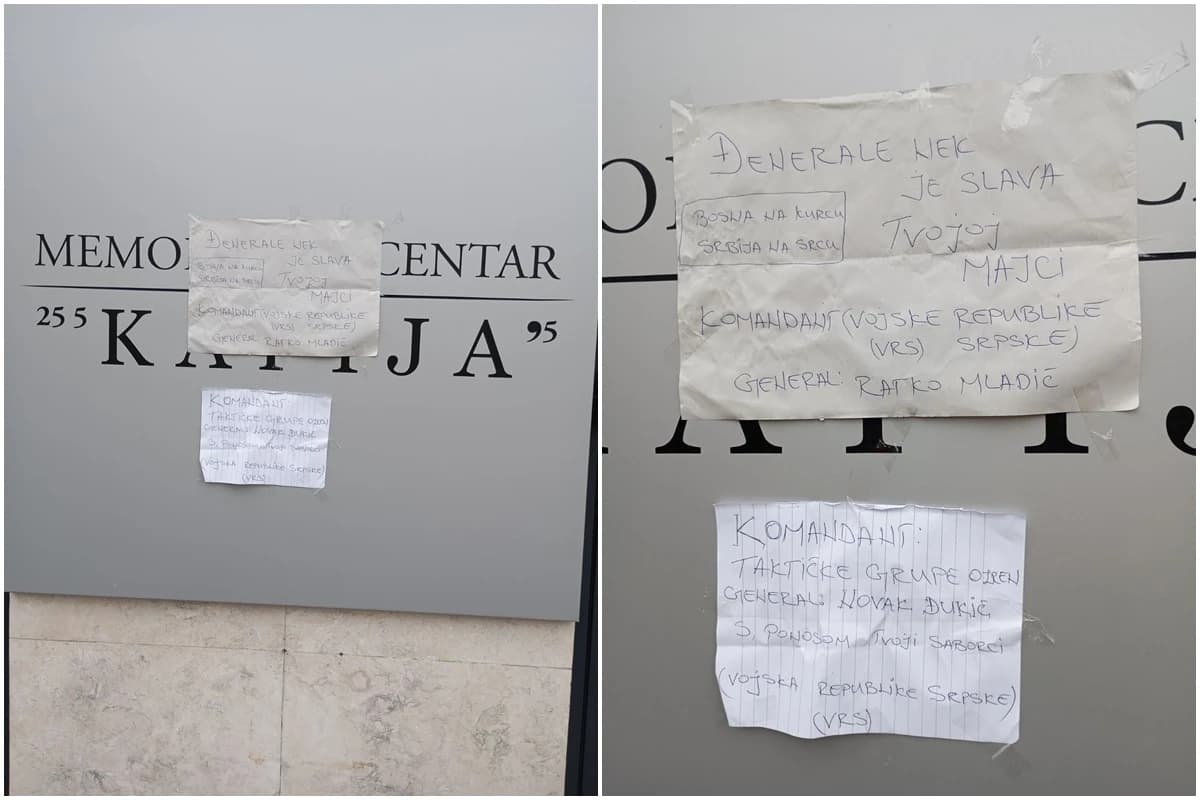 MEMO CENTAR
25 5 "KAPIJA" 95
ĐENERALE NEK
JE SLAVA
BOSNA NA KURCU
SRBIJA NA SRCU
TVOJOJ
MAJCI
KOMANDANT (VOJSKE REPUBLIKE
(VRS) SRPSKE)
GENERAL: RATKO MLADIČ
KOMANDANT:
TAKTIČKE GRUPE OZREN
GENERAL: NOVAK ĐUKIČ
S PONOSOM TVOJI SABORCI
(VOJSKA REPUBLIKE SRPSKE)
(VRS)
ĐENERALE NEK
JE SLAVA
BOSNA NA KURCU
SRBIJA NA SRCU
TVOJOJ
MAJCI
KOMANDANT (VOJSKE REPUBLIKE
(VRS) SRPSKE)
GENERAL: RATKO MLADIČ
KOMANDANT:
TAKTIČKE GRUPE OZREN
GENERAL: NOVAK ĐUKIČ
S PONOSOM TVOJI SABORCI
(VOJSKA REPUBLIKE SRPSKE)
(VRS)